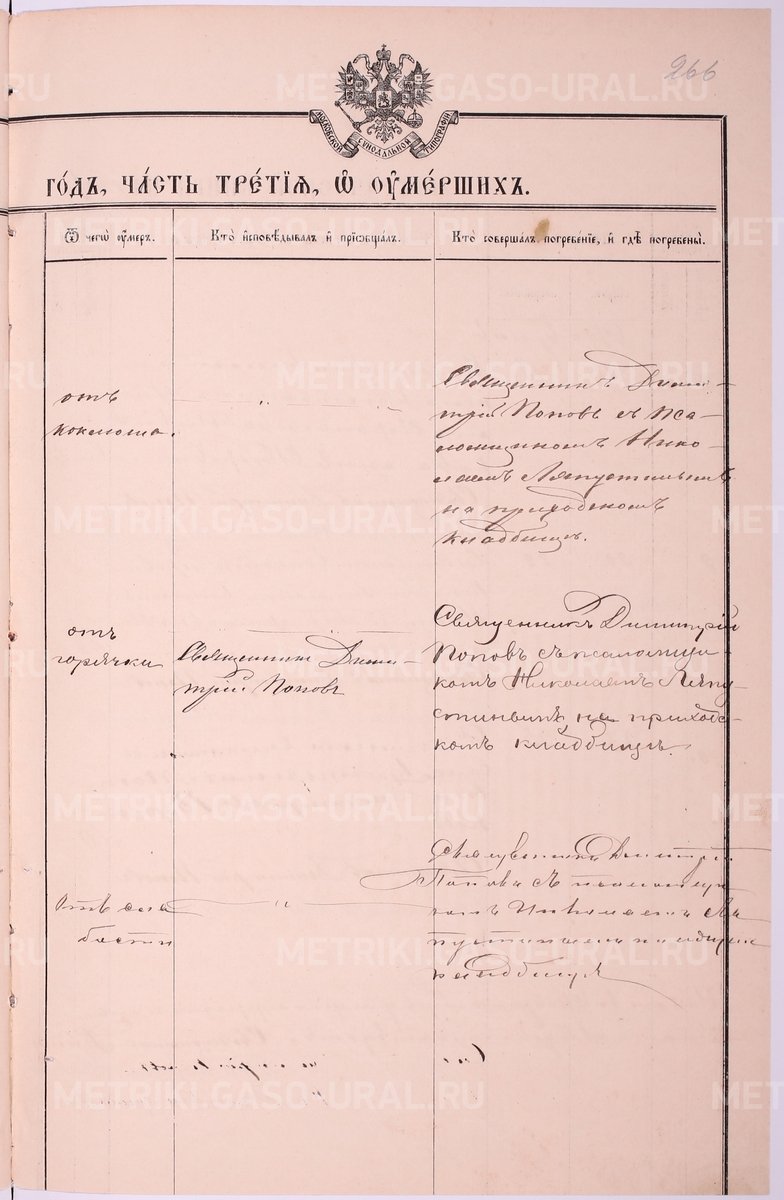 266
МОСКОВСКОЙ СѴНОДАЛЬНОЙ ТИПОГРАФІИ
го́дъ, ча́сть тре́тїѧ, ѡ҆ ᲂу҆ме́ршихъ.
Ѿ чегѡ̀ ᲂу҆́меръ.
Кто̀ и҆сповѣ́дывалъ и҆ прїѡбща́лъ.
Кто̀ соверша́лъ погребе́нїе, и҆ гдѣ̀ погребены̀.
отъ
коклюша.
Священникъ Дими-
трій Поповъ съ пса-
ломщикомъ Нико-
лаемъ Ляпустинымъ
на приходскомъ
кладбищѣ.
отъ
горячки
Священникъ Дими-
трій Поповъ
Священникъ Димитрій
Поповъ съ псаломщи-
комъ Николаемъ Ляпу-
стинымъ на приходс-
комъ кладбищѣ.
Отъ сла
бости
Священникъ Димитрій
Поповъ съ псаломщи
комъ Николаемъ Ля
пустинымъ на
кладбищѣ
METRIKI.GASO-URAL.RU